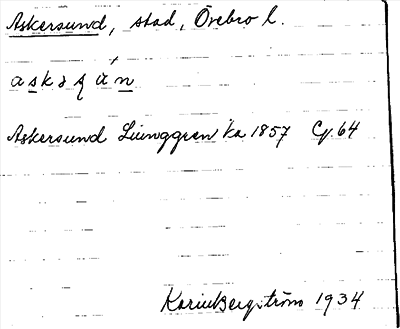 Askersund, stad, Örebro l.
Askersund Ljunggren ka 1857 Cg. 64
Karin Bergström 1934